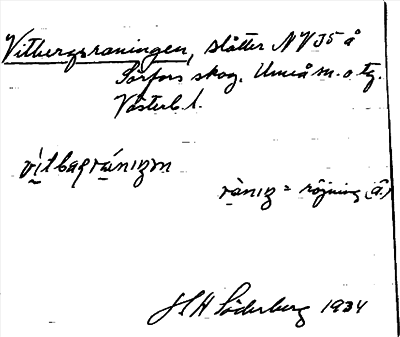 Vitbergsraningen, slåtter NV 35 å
Sörfors skog. Umeå m. o. tg.
Västerb. l.
vi̱tbaqránızm
rànız = röjning (å.)
J S H Söderberg 1934